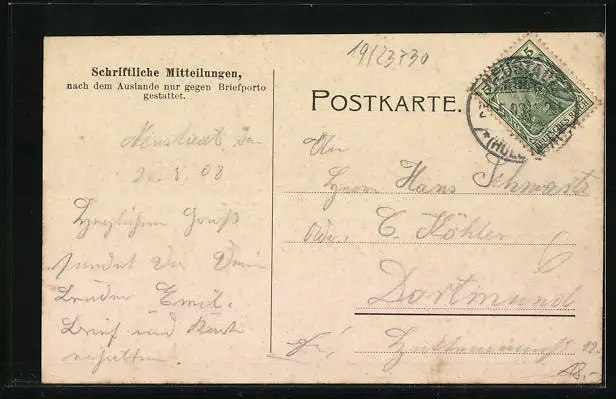 Schriftliche Mitteilungen,
nach dem Auslande nur gegen Briefporto
gestattet.
Neustadt, den
20.3.08
Herzlichen Gruß
sendet Dir Dein
Bruder Emil.
Brief und Karte
erhalten.
19/23730
POSTKARTE.
An
Herrn Hans Schwartz
Adr. C. Köhler
Dortmund
NEUSTADT
(HOLSTEIN)
5
5
DEUTSCHES REICH
18.-